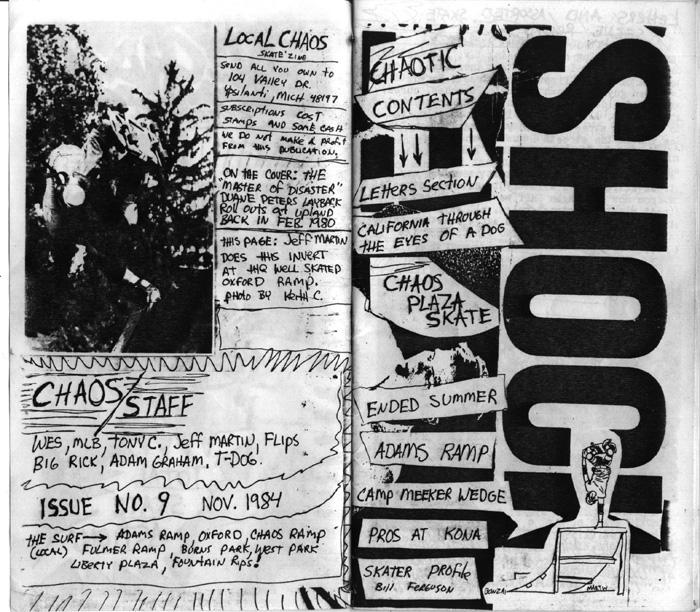 LOCAL CHAOS
SKATE'ZINE
SEND ALL YOU OWN TO
104 VALLEY DR.
YPSILANTI, MICH 48197
SUBSCRIPTIONS COST
STAMPS AND SOME CASH
WE DO NOT MAKE A PROFIT
FROM THIS PUBLICATION.
"ON THE COVER: THE
MASTER OF DISASTER"
DUANE PETERS LAYBACK
ROLL OUTS AT UPLAND
BACK IN FEB. 1980
THIS PAGE: JEFF MARTIN
DOES THIS INVERT
AT THE WELL SKATED
OXFORD RAMP.
PHOTO BY KEITH C.
CHAOS/STAFF
WES, MLB, TONY C., JEFF MARTIN, FLIPS
BIG RICK, ADAM GRAHAM, T-DOG.
ISSUE NO. 9 NOV. 1984
THE SURF → ADAMS RAMP, OXFORD, CHAOS RAMP
(LOCAL) FULMER RAMP, BURNS PARK, WEST PARK
LIBERTY PLAZA, FOUNTAIN RIPS!
CHAOTIC
CONTENTS
LETTERS SECTION
CALIFORNIA THROUGH
THE EYES OF A DOG
CHAOS
PLAZA
SKATE
ENDED SUMMER
ADAMS RAMP
CAMP MEEKER WEDGE
PROS AT KONA
SKATER PROFILE
BILL FERGUSON
SHOCK